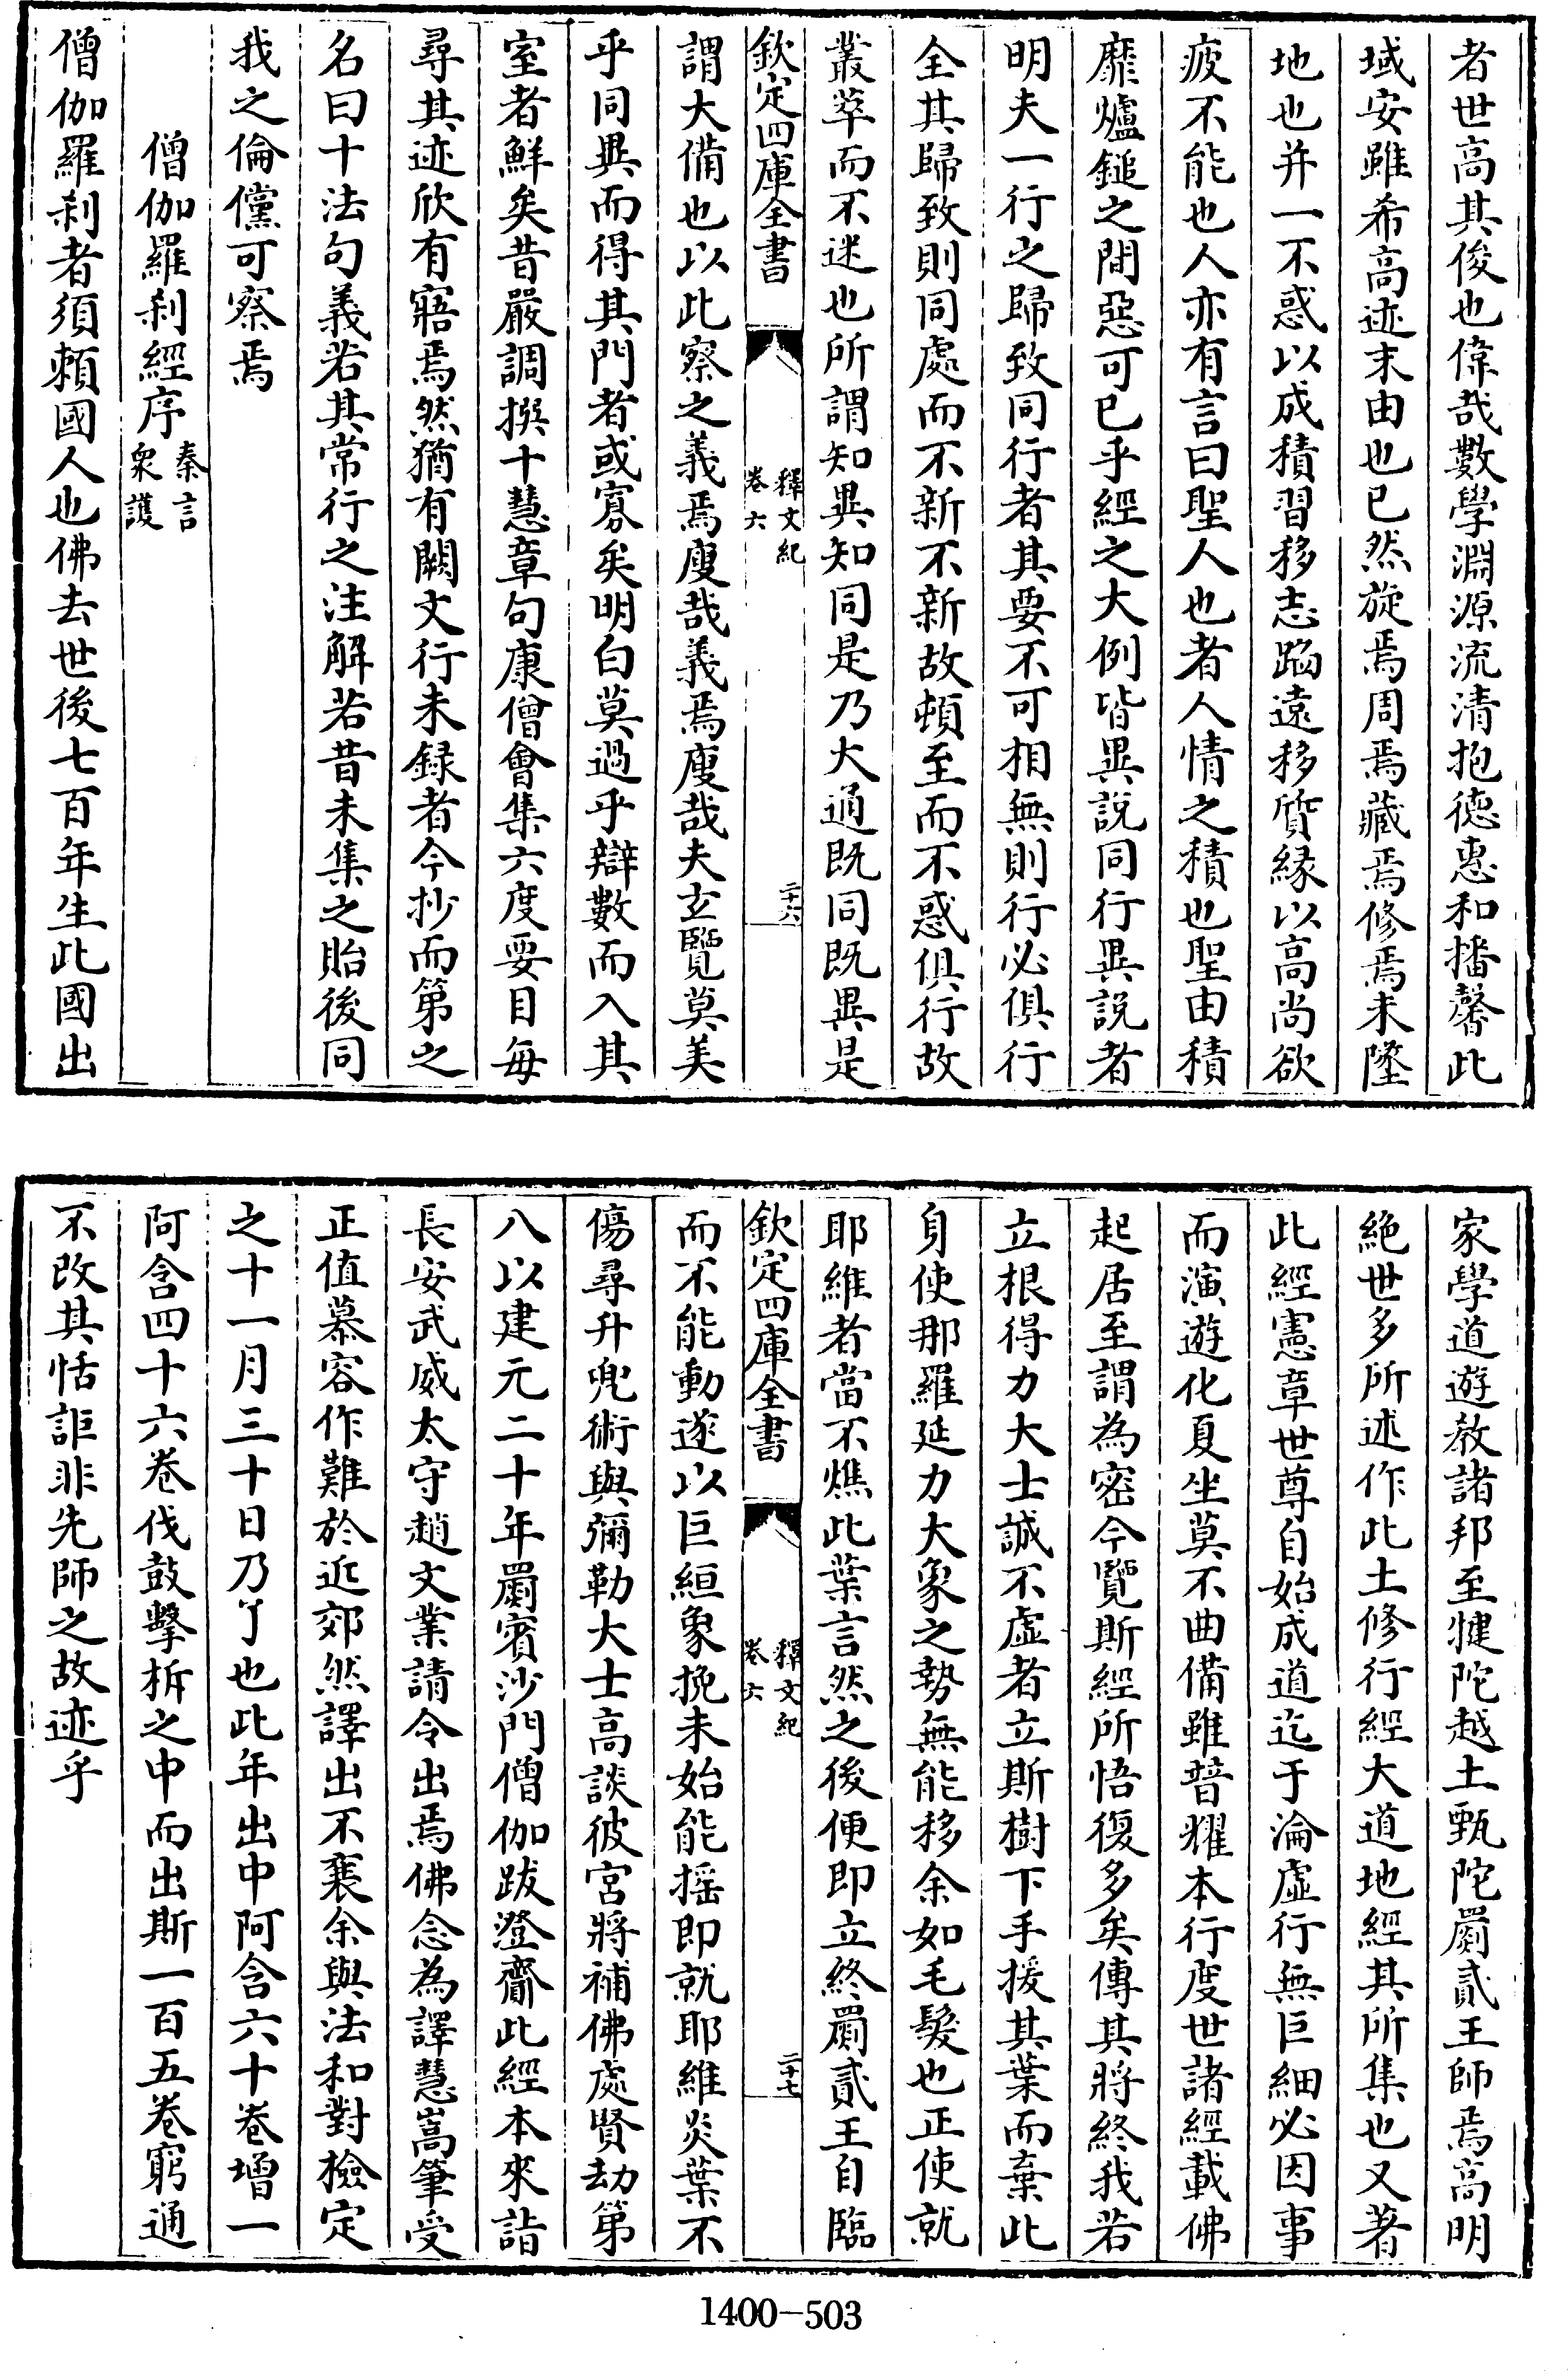 者世高其俊也偉哉數學淵源流清抱德惠和播馨此
域安雖希高迹末由也已然旋焉周焉藏焉修焉未墜
地也并一不惑以成積習移志蹈遠移質緣以高尚欲
疲不能也人亦有言曰聖人也者人情之積也聖由積
靡爐鎚之間惡可已乎經之大例皆異說同行異說者
明夫一行之歸致同行者其要不可相無則行必俱行
全其歸致則同處而不新不新故頓至而不惑俱行故
叢萃而不迷也所謂知異知同是乃大通既同既異是
欽定四庫全書
釋文紀
卷六
二十六
謂大備也以此察之義焉廋哉義焉廋哉夫玄覽莫美
乎同異而得其門者或寡矣明白莫過乎辯數而入其
室者鮮矣昔嚴調撰十慧章句康僧會集六度要目每
尋其迹欣有寤焉然猶有闕文行未録者今抄而第之
名曰十法句義若其常行之注解若昔未集之貽後同
我之倫儻可察焉
僧伽羅刹經序
秦言
衆護
僧伽羅刹者須賴國人也佛去世後七百年生此國出
家學道遊教諸邦至犍陀越土甄陀罽貳王師焉高明
絶世多所述作此土修行經大道地經其所集也又著
此經憲章世尊自始成道迄于淪虛行無巨細必因事
而演遊化夏坐莫不曲備雖普耀本行度世諸經載佛
起居至謂為密今覽斯經所悟復多矣傳其將終我若
立根得力大士誠不虛者立斯樹下手援其葉而棄此
身使那羅延力大象之勢無能移余如毛髮也正使就
耶維者當不燋此葉言然之後便即立終罽貳王自臨
欽定四庫全書
釋文紀
卷六
二十七
而不能動遂以巨絙象挽未始能搖即就耶維炎葉不
傷尋升兜術與彌勒大士高談彼宮將補佛處賢劫第
八以建元二十年罽賓沙門僧伽跋澄齎此經本來詣
長安武威太守趙文業請令出焉佛念為譯慧嵩筆受
正值慕容作難於近郊然譯出不襄余與法和對檢定
之十一月三十日乃了也此年出中阿含六十卷增一
阿含四十六卷伐鼓擊柝之中而出斯一百五卷窮通
不改其恬詎非先師之故迹乎
1400-503